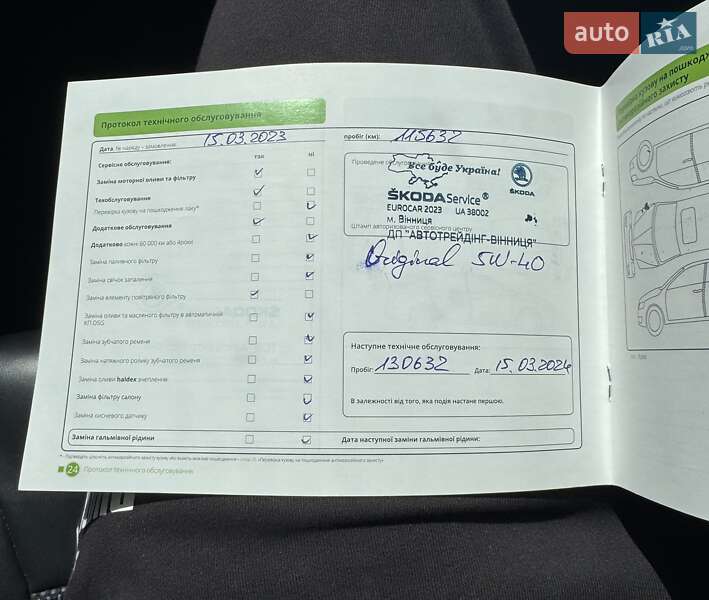 auto RIA.com
Протокол технічного обслуговування
Дата 15.03.2023
пробіг (км): 115632
так ні
Сервісне обслуговування:
Заміна моторної оливи та фільтру
Техобслуговування
Перевірка кузову на пошкодження лаку*
Додаткове обслуговування
Додатково кожні 60 000 км або 4роки
Заміна паливного фільтру
Заміна свічок запалення
Заміна елементу повітряного фільтру
Заміна оливи та масляного фільтру в автоматичній
КП,DSG
Заміна зубчатого ременя
Заміна натяжного ролику зубчатого ременя
Заміна оливи haldex зчеплення
Заміна фільтру салону
Заміна кисневого датчику
Заміна гальмівної рідини
Проведене обслуговування
Все буде Україна!
ŠKODA Service®
ŠKODA
EUROCAR 2023 UA 38002
м. Вінниця
Штамп авторизованого сервісного центру
ДП "АВТОТРЕЙДІНГ-ВІННИЦЯ"
Original 5W-40
Наступне технічне обслуговування:
Пробіг: 130632 Дата: 15.03.2024
В залежності від того, яка подія настане першою.
Дата наступної заміни гальмівної рідини:
24 Протокол технічного обслуговування
кузову на пошкодж
захисту